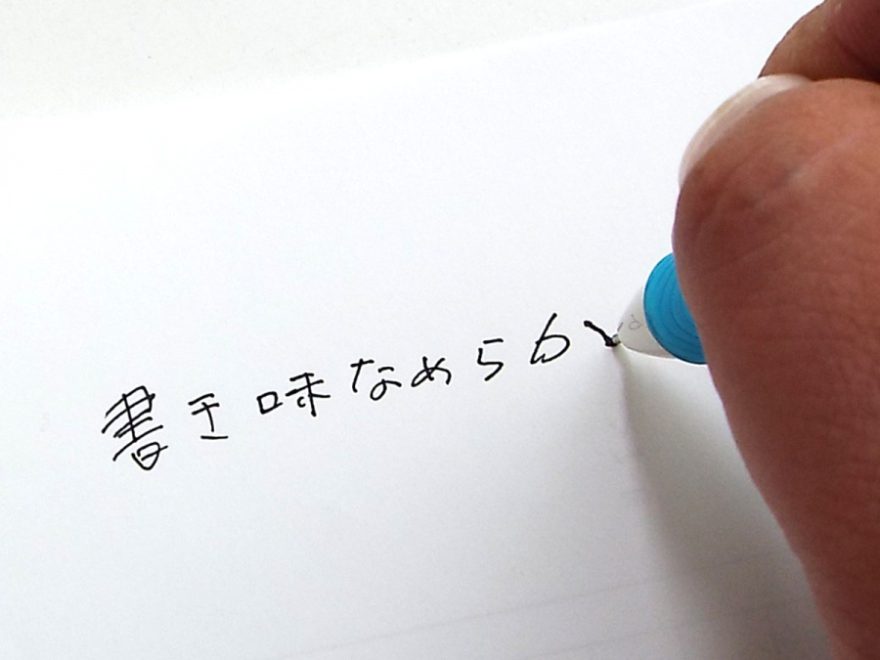 書き味なめらか